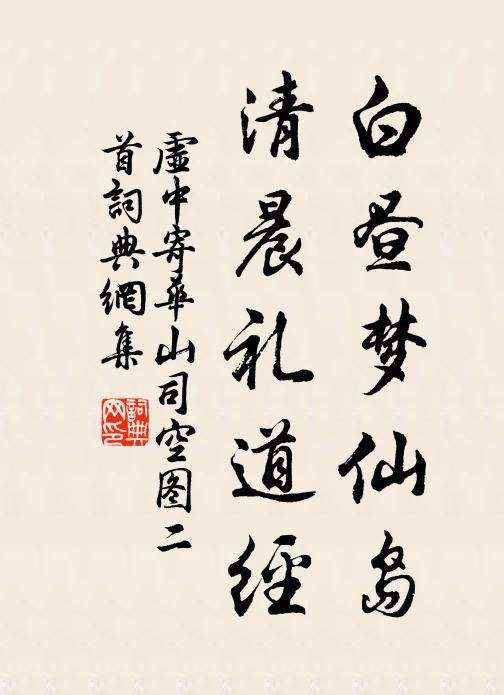 白昼梦仙岛
清晨礼道经
虚中寄华山司空图二
首词典網集
詞典網印